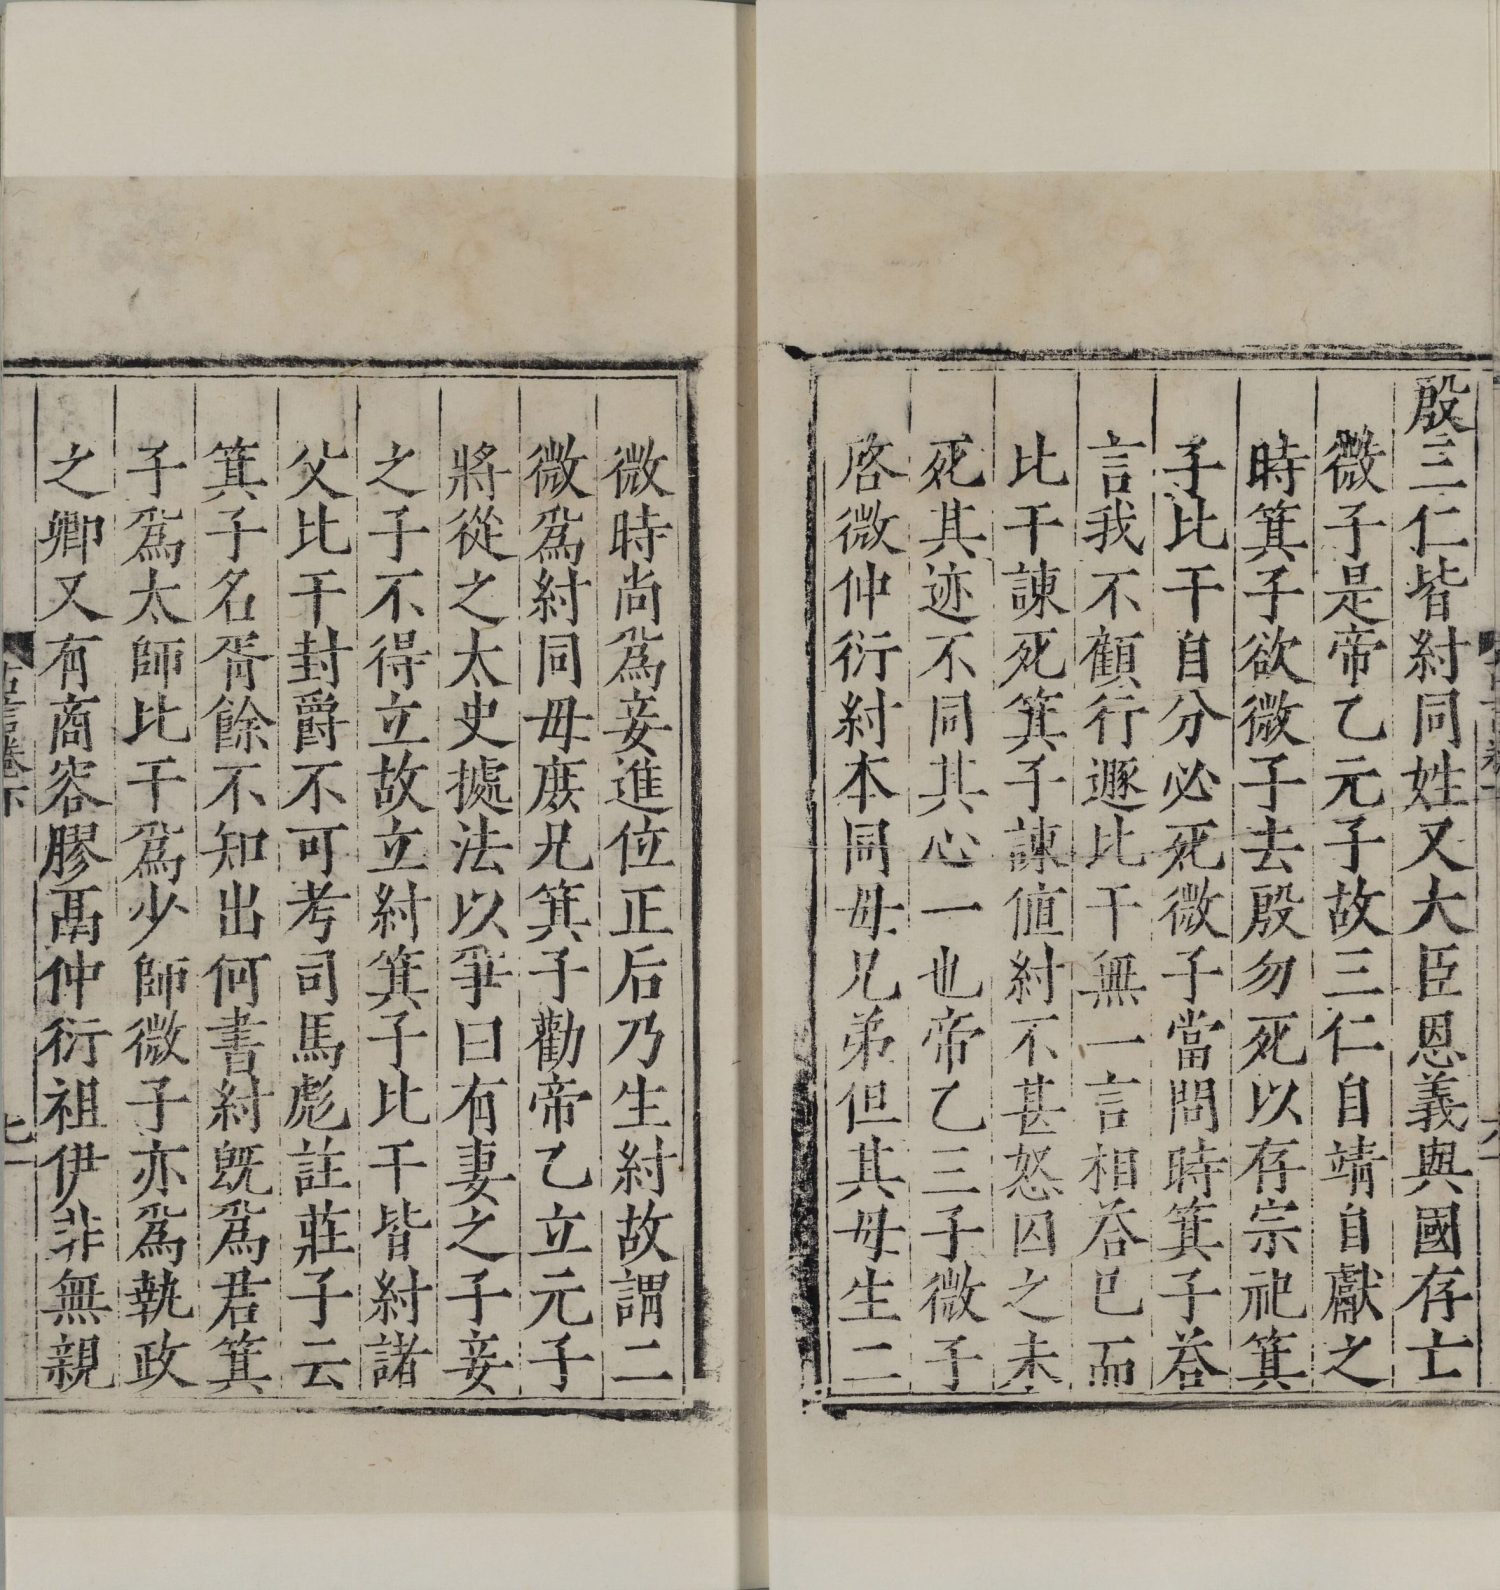 殷三仁皆紂同姓又大臣恩義與國存亡
微子是帝乙元子故三仁自靖自獻之
時箕子欲微子去殷勿死以存宗祀箕
子比干自分必死微子當問時箕子荅
言我不顧行遯比干無一言相荅已而
比干諫死箕子諫値紂不甚怒囚之未
死其迹不同其心一也帝乙三子微子
啓微仲衍紂本同母兄弟但其母生二
微時尚爲妾進位正后乃生紂故謂二
微爲紂同母庻兄箕子勸帝乙立元子
將從之太史據法以爭曰有妻之子妾
之子不得立故立紂箕子比干皆紂諸
父比干封爵不可考司馬彪註莊子云
箕子名胥餘不知出何書紂旣爲君箕
子爲太師比干爲少師微子亦爲執政
之卿又有商容膠鬲仲衍祖伊非無親